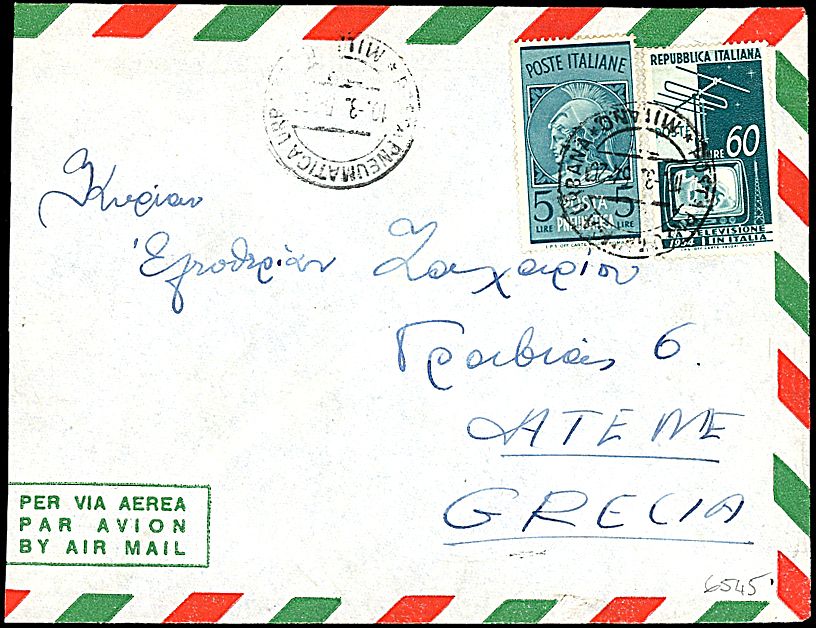 POSTE ITALIANE
5 LIRE
POSTA PNEUMATICA
5 LIRE
REPUBBLICA ITALIANA
LIRE 60
LA TELEVISIONE
1954 IN ITALIA
PNEUMATICA URB
MIL
10.3.
MILANO
URBANA
Κυρίαν
Ζαχαρίου
Γραβιᾶς 6.
ATENE
GRECIA
PER VIA AEREA
PAR AVION
BY AIR MAIL
6545